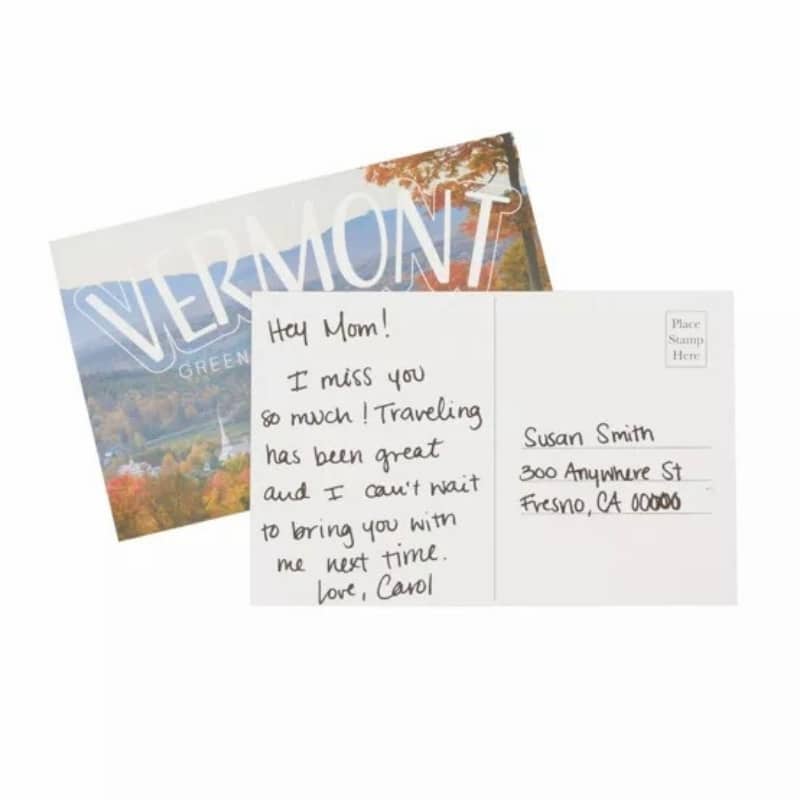 VERMONT
GREEN
Hey Mom!
I miss you
so much! Traveling
has been great
and I can't wait
to bring you with
me next time.
Love, Carol
Place
Stamp
Here
Susan Smith
300 Anywhere St
Fresno, CA 00000